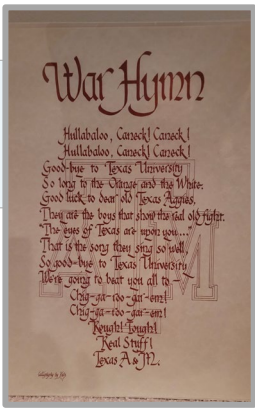 War Hymn
Hullabaloo, Caneck! Caneck!
Hullabaloo, Caneck! Caneck!
Good-bye to Texas University
So long to the Orange and the White.
Good luck to dear old Texas Aggies,
They are the boys that show the real old fight.
"The eyes of Texas are upon you..."
That is the song they sing so well,
So good-bye to Texas University
We're going to beat you all to —
Chig-ga-roo-gar-em!
Chig-ga-roo-gar-em!
Rough! Tough!
Real Stuff!
Texas A & M.